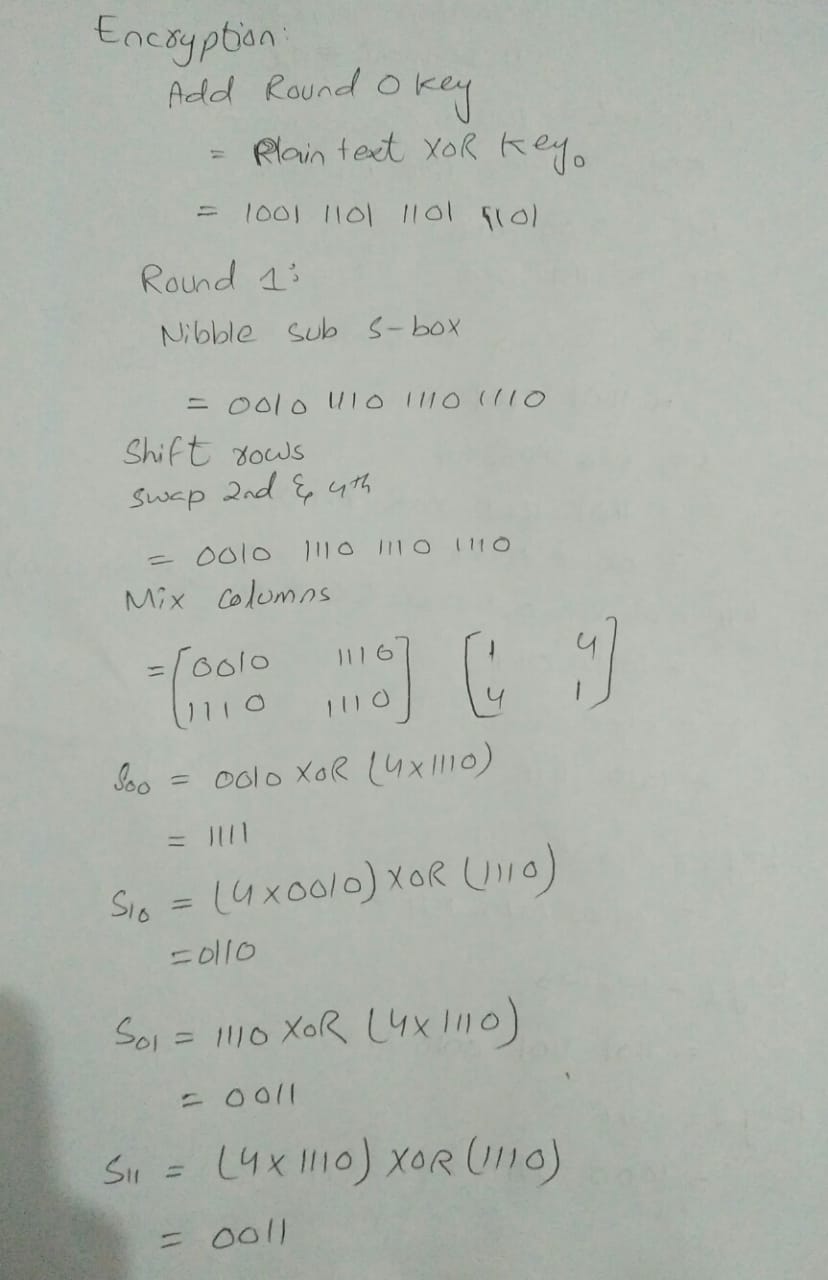 Encryption:
Add Round 0 key
= Plain text XOR key₀
= 1001 1101 1101 1101
Round 1:
Nibble sub S-box
= 0010 1110 1110 1110
Shift rows
swap 2nd & 4th
= 0010 1110 1110 1110
Mix columns
= [0010 1110] [1 4]
[1110 1110] [4 1]
S₀₀ = 0010 XOR (4x1110)
= 1111
S₁₀ = (4x0010) XOR (1110)
= 0110
S₀₁ = 1110 XOR (4x1110)
= 0011
S₁₁ = (4x1110) XOR (1110)
= 0011